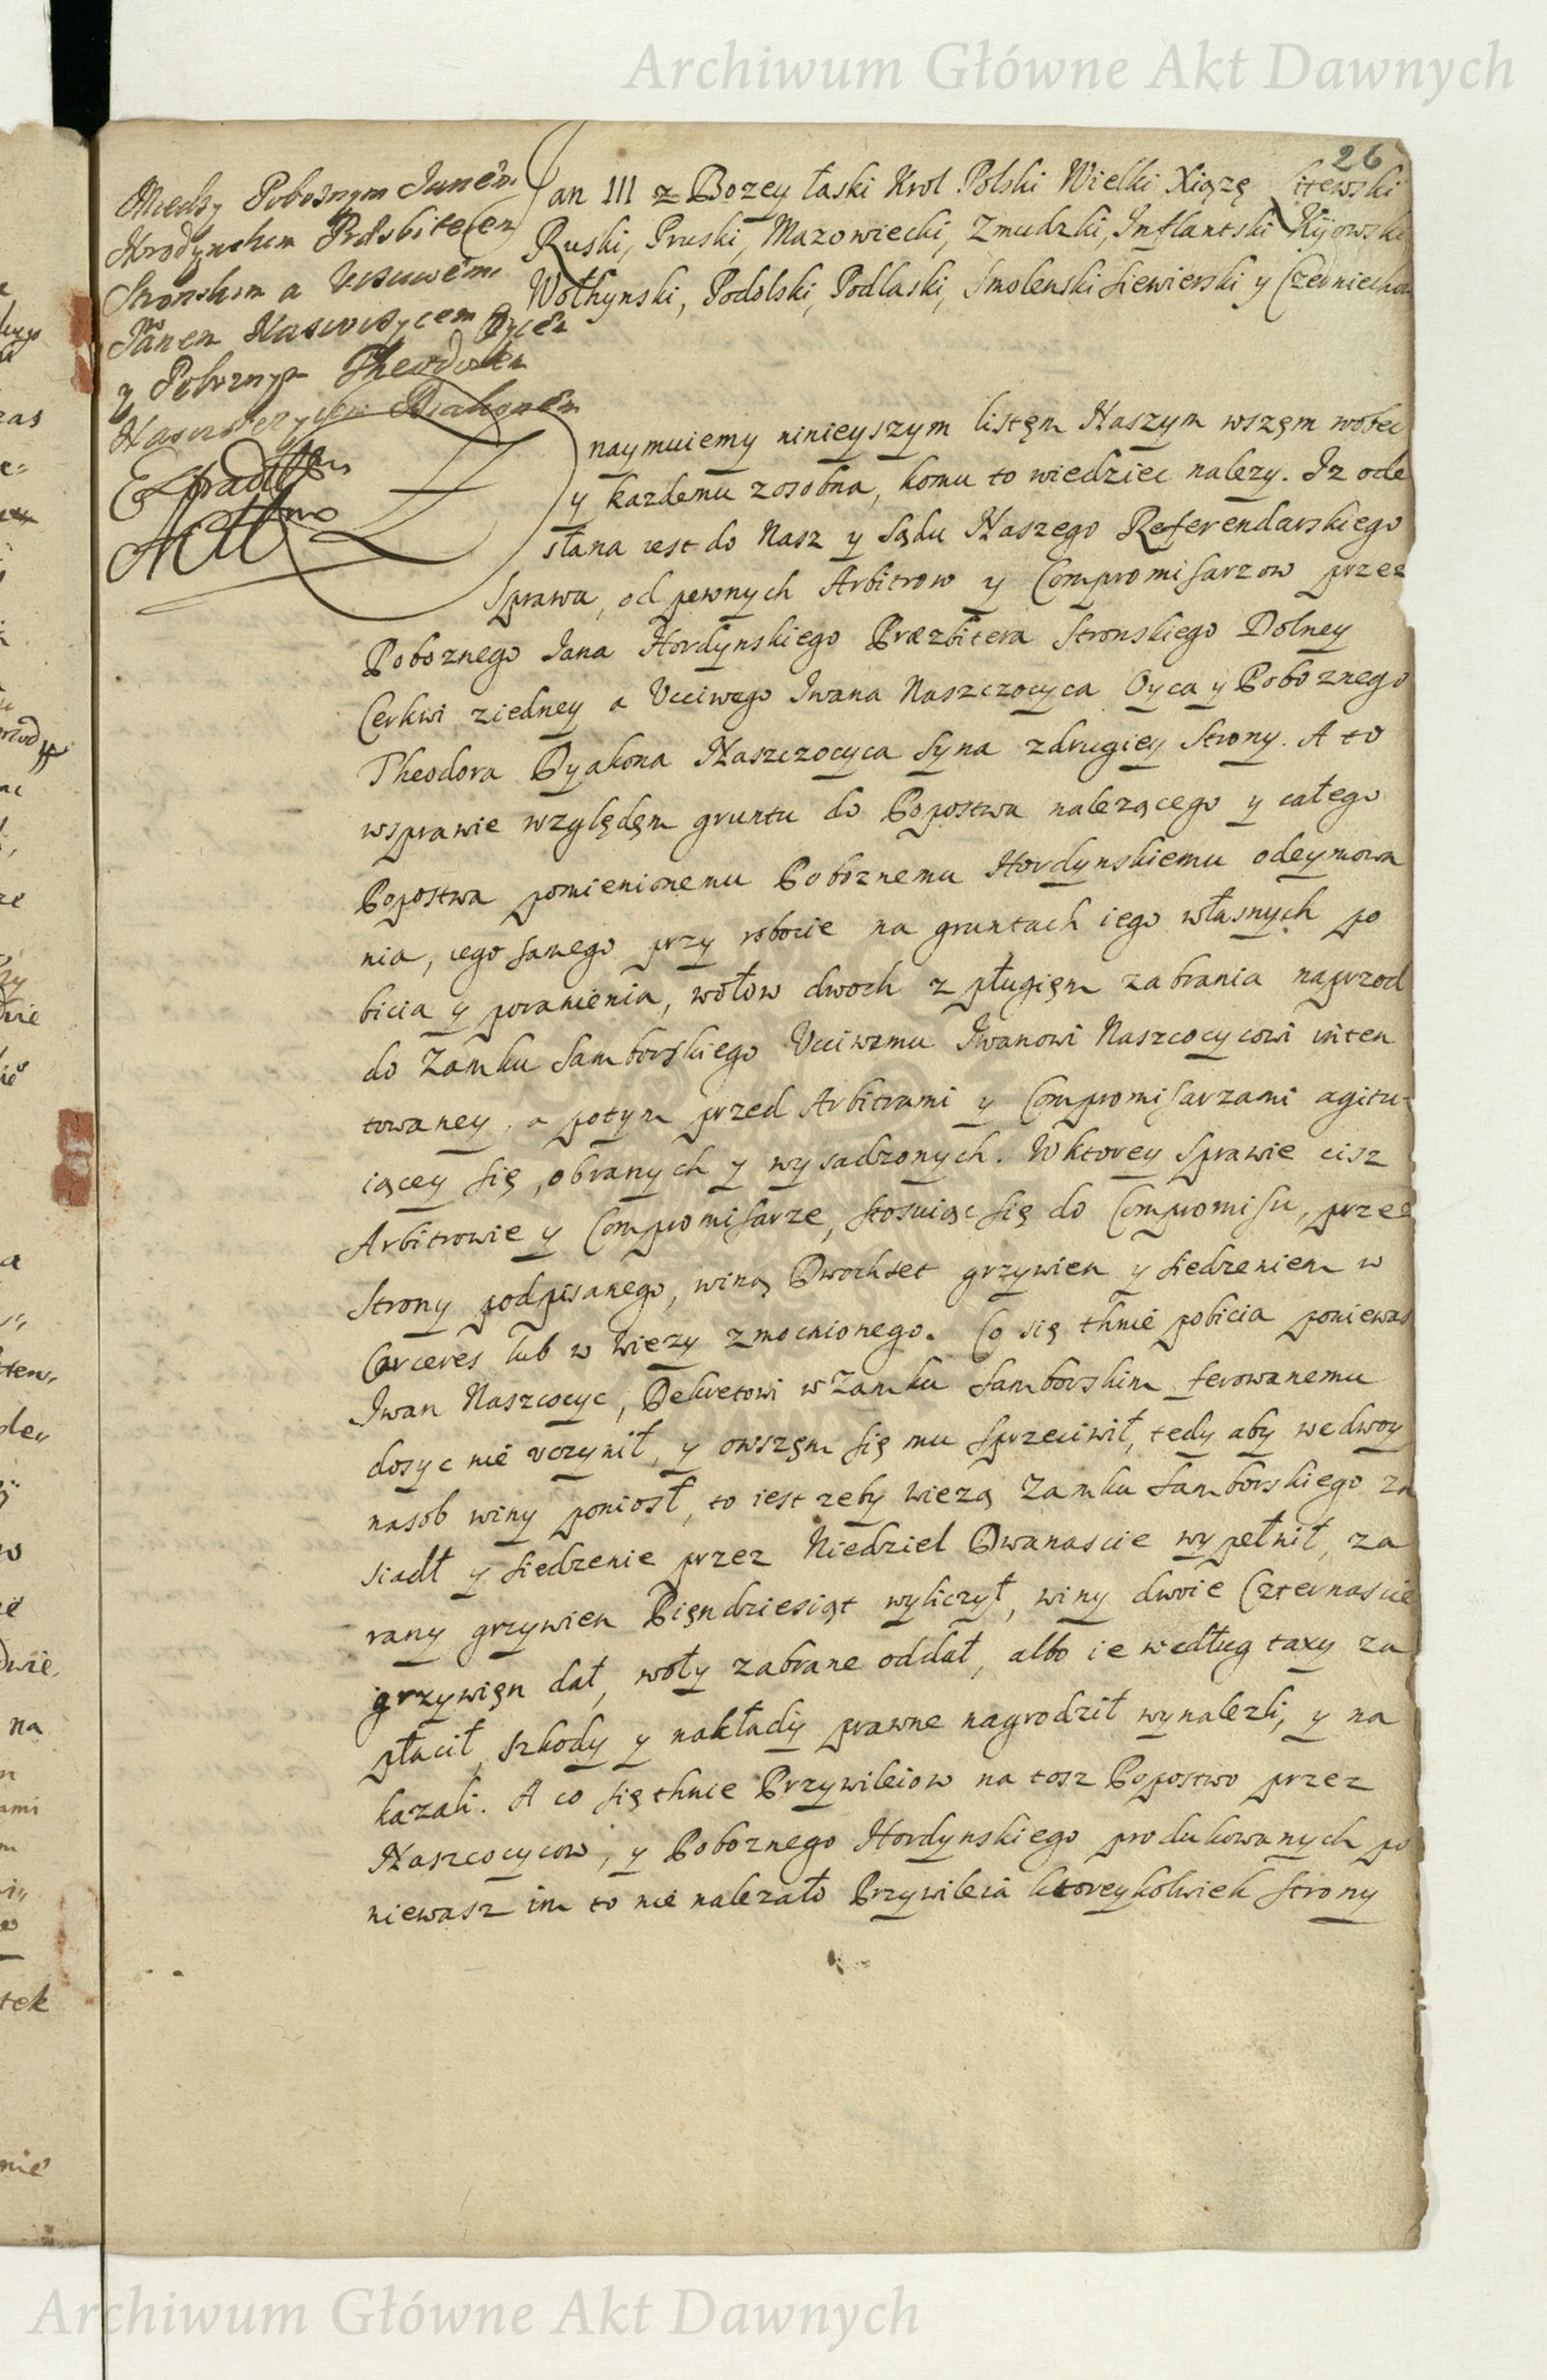 Archiwum Główne Akt Dawnych
26
Miedzy Poboznym Janem
Hrodynskem Presbiterem
Stronskim a Uczciwem
Janem Naswoszycem Oycem
y Poboznym Theodorem
Diakonem
Jan III z Bozey łaski Krol Polski Wielki Xiązę Litewski
Ruski, Pruski, Mazowiecki, Zmudzki, Inflantski Kijowski
Wołhynski, Podolski, Podlaski, Smolenski Siewierski y Czerniechow
Znaymuiemy ninieyszym listęm Naszym wszęm wobec
y kazdemu zosobna, komu to wiedziec nalezy. Iz ode
słana iest do Nasz y Sądu Naszego Referendarskiego
Sprawa, od pewnych Arbitrow y Compromisarzow przez
Poboznego Jana Hordynskiego Præzbitera Stronskiego Dolney
Cerkwi ziedney a Ucciwego Iwana Naszczocyca Oyca y Poboznego
Theodora Dyakona Naszczocyca Syna zdrugiey Strony. A to
wsprawie względęm gruntu do Popostwa nalezącego y całego
Popostwa pomienionemu Poboznemu Hordynskiemu odeymowa
nia, iego samego przy robocie na gruntach iego własnych po
bicia y poranienia, wołow dwoch z pługięm zabrania naprzod
do Zamku Samborskiego Ucciwemu Iwanowi Naszcocycowi inten
towaney, a potym przed Arbitrami y Compromisarzami agitu-
iącey się, obranych y wysadzonych. Wktorey Sprawie cisz
Arbitrowie y Compromisarze, stosuiąc się do Compromisu, przez
Strony podpisanego, winą Dwochset grzywien y siedzeniem w
Carceres lub w Wiezy zmocnionego. Co się thnie pobicia poniewas
Iwan Naszcocyc, Dekretowi w Zamku Samborskim ferowanemu
dosyc nie uczynił, y owszęm się mu sprzeciwił, tedy aby wedwoy
nasob winy poniosł, to iest zeby wiezą Zamku Samborskiego za
siadł y siedzenie przez Niedziel Dwanascie wypełnił, za
rany grzywien Pięndziesiąt wyliczył, winy dwoie Czternascie
grzywięn dał, woły zabrane oddał, albo ie według taxy za
płacił, szkody y nakłady prawne nagrodził wynalezli, y na
kazali. A co się thnie Przywileiow na tosz Popostwo przez
Naszcocycow, y Poboznego Hordynskiego produkowanych po
niewasz im to nie nalezało Przywileia ktoreykolwiek Strony
Archiwum Główne Akt Dawnych